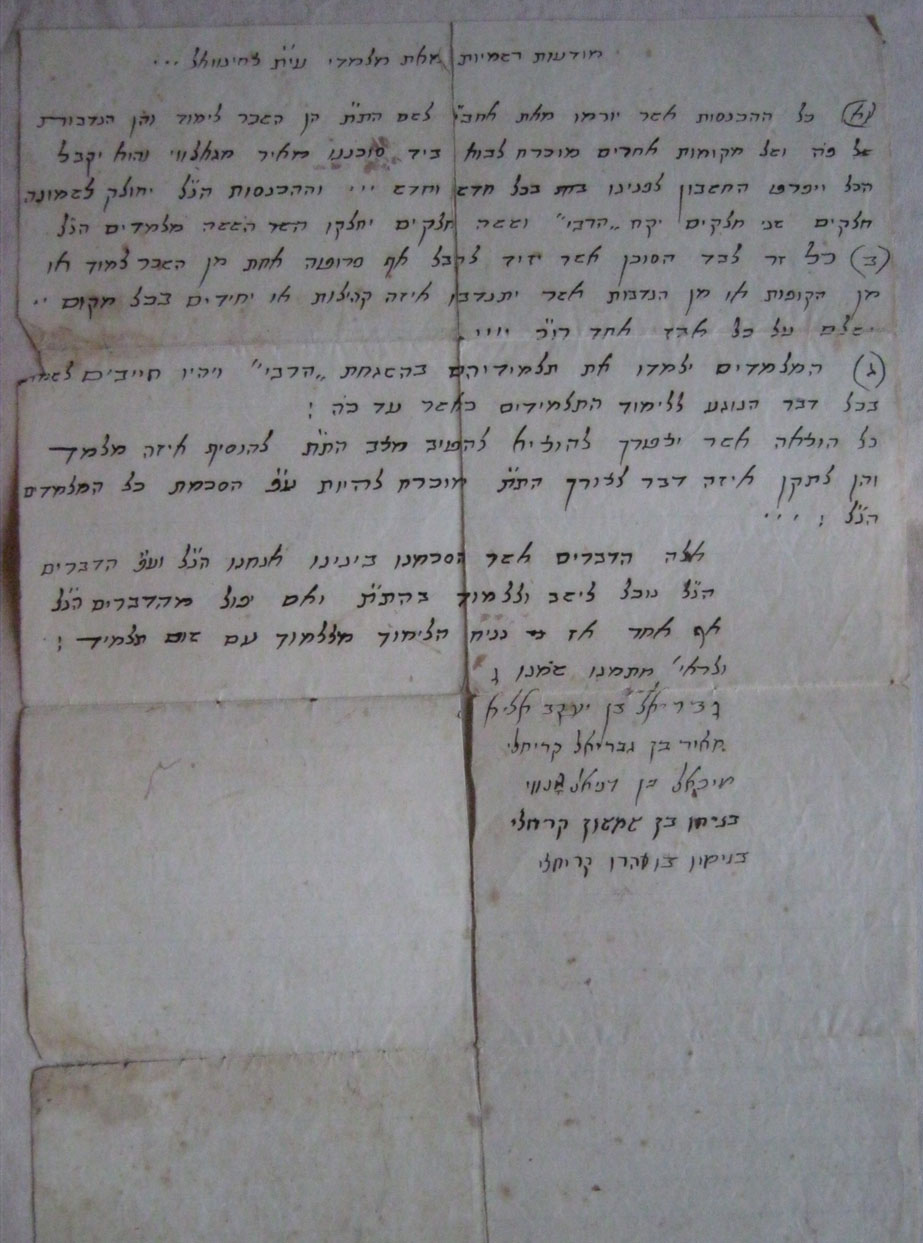 מודעות רשמיות מאת מלמדי עי״ת
א) כל ההכנסות אשר יורמו מאת אחב״י לשם הת״ת הן השכר לימוד והן הנדבות
של פה ושל מקומות אחרים מוכרח לבוא ביד סוכננו מאיר והוא יקבל
הכל ויפרט החשבון לפנינו בכל חדש וחדש וההכנסות הנ״ל יחולק לשמונה
חלקים שני חלקים יקח „הרבי״ וששה חלקים יחלקו הששה מלמדים הנ״ל
ב) כל זר לבד הסוכן אשר יזיד לקבל אף פרוטה אחת מן השכר לימוד או
מן הקופות או מן הנדבות אשר יתנדבו איזה קהלות או יחידים בכל מקום
ישלם על כל אחד
ג) המלמדים ילמדו את תלמידיהם בהשגחת „הרבי״ ויהיו חייבים
בכל דבר הנוגע ללימוד התלמידים כאשר עד כה ;
כל הוצאה אשר יצטרך להוציא הת״ת להוסיף איזה מלמד
והן לתקן איזה דבר לצורך הת״ת מוכרח להיות ע״פ הסכמת כל המלמדים
הנ״ל ;
אלה הדברים אשר הסכמנו בינינו אנחנו הנ״ל וע״פ הדברים
הנ״ל נוכל לישב וללמוד בהת״ת ואם יפול מהדברים הנ״ל
אף אחד אז נניח מללמוד עם שום תלמיד ;
ולראי׳ חתמנו שמנו
גבריאל בן יעקב אליא
מאיר בן גבריאל קריחלי
מיכאל בן
בנימן בן שמעון קריחלי
בנימין בן אהרן קריחלי